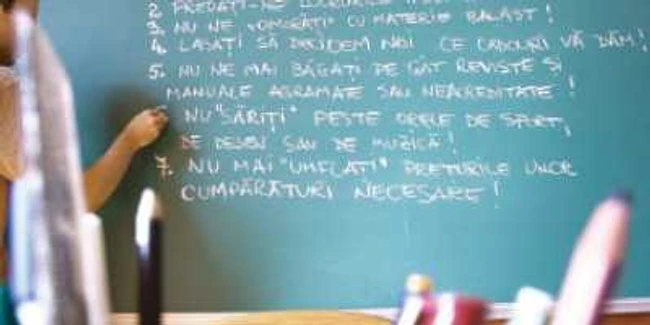 2. PREDAȚI-NE LUCRURILE
3. NU NE "OMORÂȚI" CU MATERIE BALAST!
4. LĂSAȚI SĂ DECIDEM NOI CE CADOURI VĂ DĂM!
5. NU NE MAI BĂGAȚI PE GÂT REVISTE ȘI
MANUALE AGRAMATE SAU NEACREDITATE!
NU "SĂRIȚI" PESTE ORELE DE SPORT,
DE DESEN SAU DE MUZICĂ!
7. NU MAI "UMFLAȚI" PREȚURILE UNOR
CUMPĂRĂTURI NECESARE!